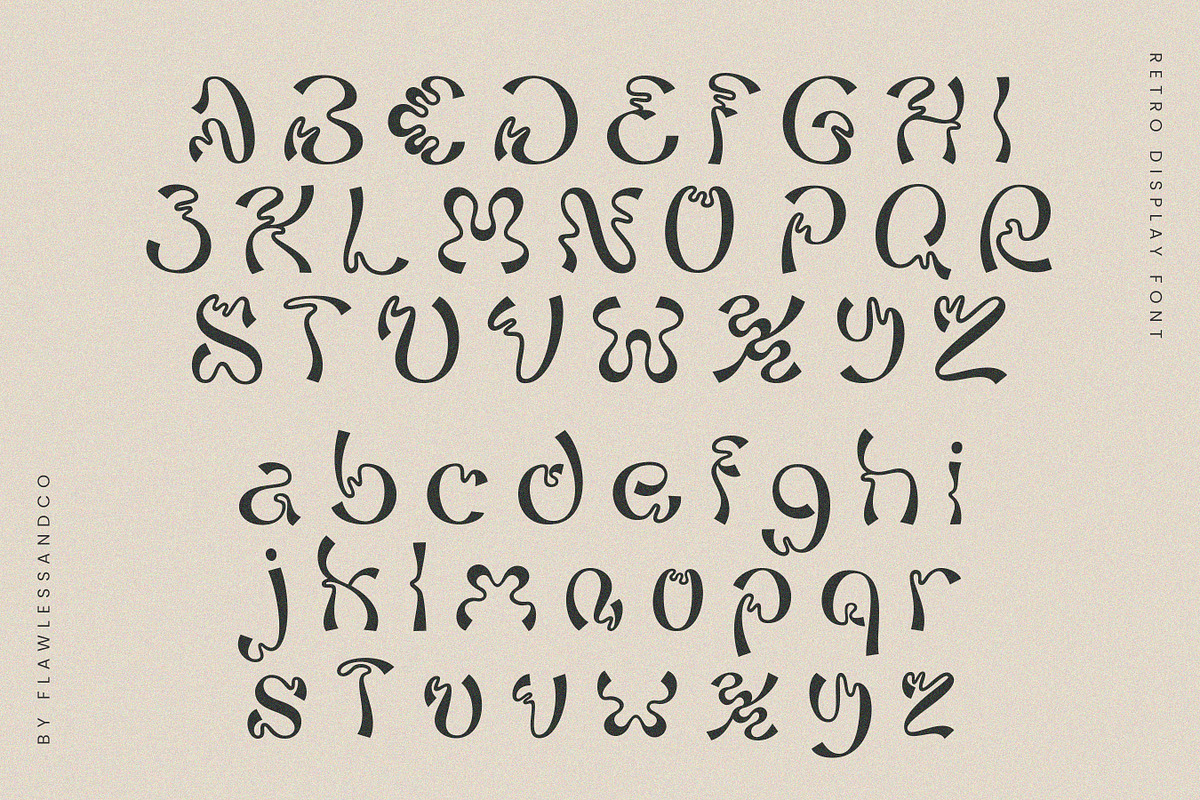 A B C D E F G H I
J K L M N O P Q R
S T U V W X Y Z
a b c d e f g h i
j k l m n o p q r
s t u v w x y z
RETRO DISPLAY FONT
BY FLAWLESSANDCO